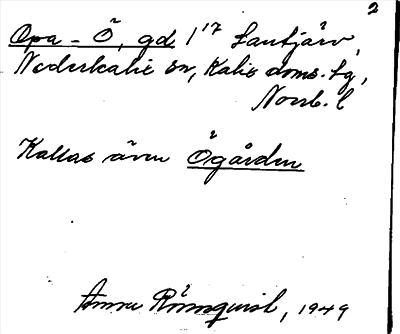 2
Opa-Ö, gd 1¹⁷ Lantjärv,
Nederkalix sn, Kalix doms. lg,
Norrb. l
Kallas även Ögården
Rönnqvist, 1949